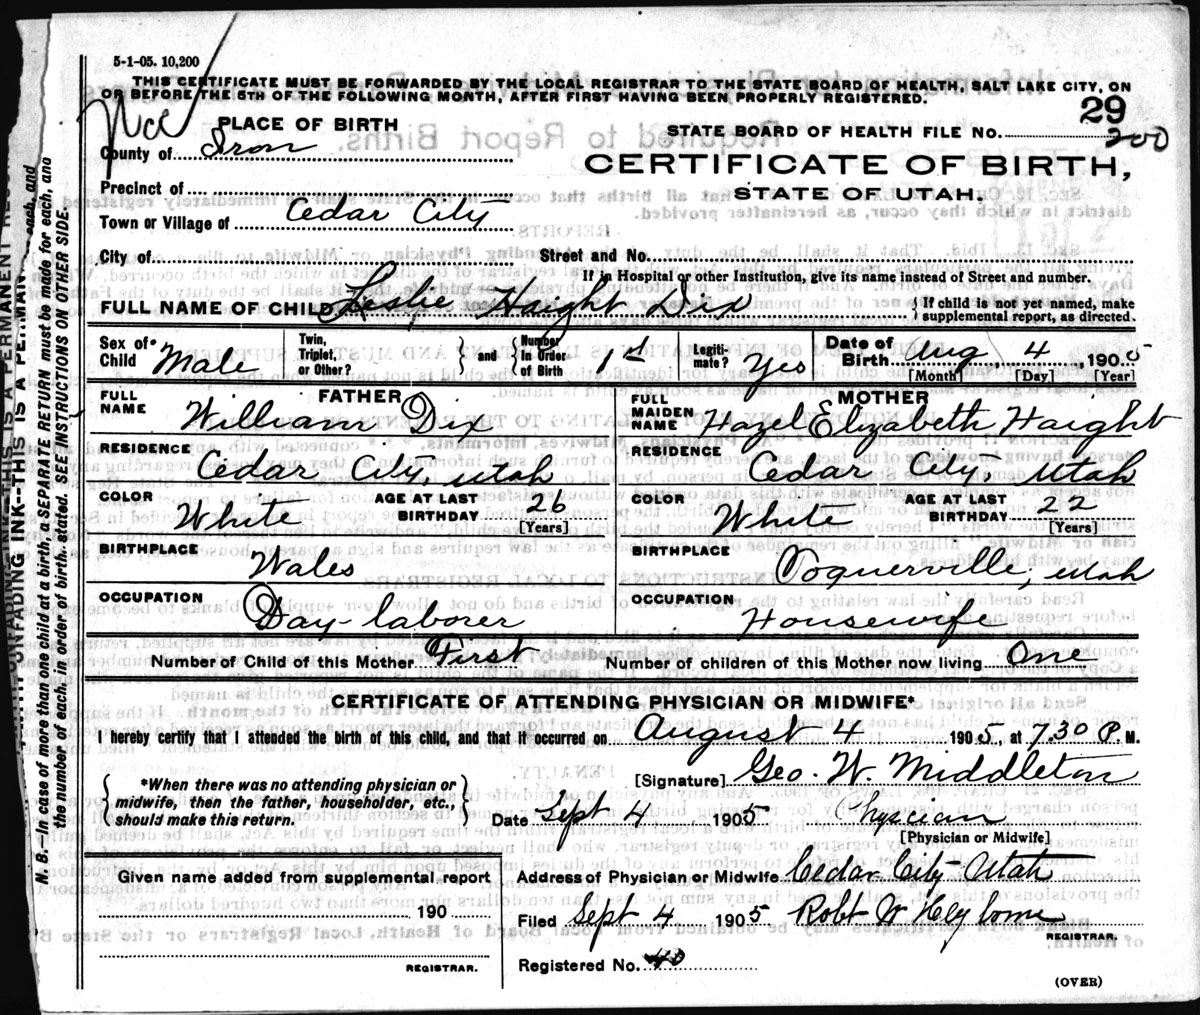 5-1-05. 10,200
THIS CERTIFICATE MUST BE FORWARDED BY THE LOCAL REGISTRAR TO THE STATE BOARD OF HEALTH, SALT LAKE CITY, ON
OR BEFORE THE 5TH OF THE FOLLOWING MONTH, AFTER FIRST HAVING BEEN PROPERLY REGISTERED.
29
PLACE OF BIRTH
STATE BOARD OF HEALTH FILE NO. 200
County of Iron
CERTIFICATE OF BIRTH,
STATE OF UTAH.
Precinct of
Town or Village of Cedar City
City of Street and No.
If in Hospital or other Institution, give its name instead of Street and number.
FULL NAME OF CHILD Leslie Haight Dix { If child is not yet named, make
supplemental report, as directed.
Sex of Child Male Twin, Triplet, or Other? } and { Number in Order of Birth 1st Legitimate? Yes Date of Birth Aug 4 1905
[Month] [Day] [Year]
FATHER MOTHER
FULL NAME William Dix FULL MAIDEN NAME Hazel Elizabeth Haight
RESIDENCE Cedar City, Utah RESIDENCE Cedar City, Utah
COLOR White AGE AT LAST BIRTHDAY 26 [Years] COLOR White AGE AT LAST BIRTHDAY 22 [Years]
BIRTHPLACE Wales BIRTHPLACE Toquerville, Utah
OCCUPATION Day-laborer OCCUPATION Housewife
Number of Child of this Mother First Number of children of this Mother now living One
CERTIFICATE OF ATTENDING PHYSICIAN OR MIDWIFE*
I hereby certify that I attended the birth of this child, and that it occurred on August 4 1905, at 7.30 P. M.
{ *When there was no attending physician or
midwife, then the father, householder, etc.,
should make this return. }
[Signature] Geo. W. Middleton
Date Sept 4 1905 Physician
[Physician or Midwife]
Given name added from supplemental report
190
REGISTRAR.
Address of Physician or Midwife Cedar City Utah
Filed Sept 4 1905 Robt W Heyborne
REGISTRAR.
Registered No. 40
(OVER)
N. B.—In case of more than one child at a birth, a SEPARATE RETURN must be made for each, and
the number of each, in order of birth, stated. SEE INSTRUCTIONS ON OTHER SIDE.
UNFADING INK--THIS IS A